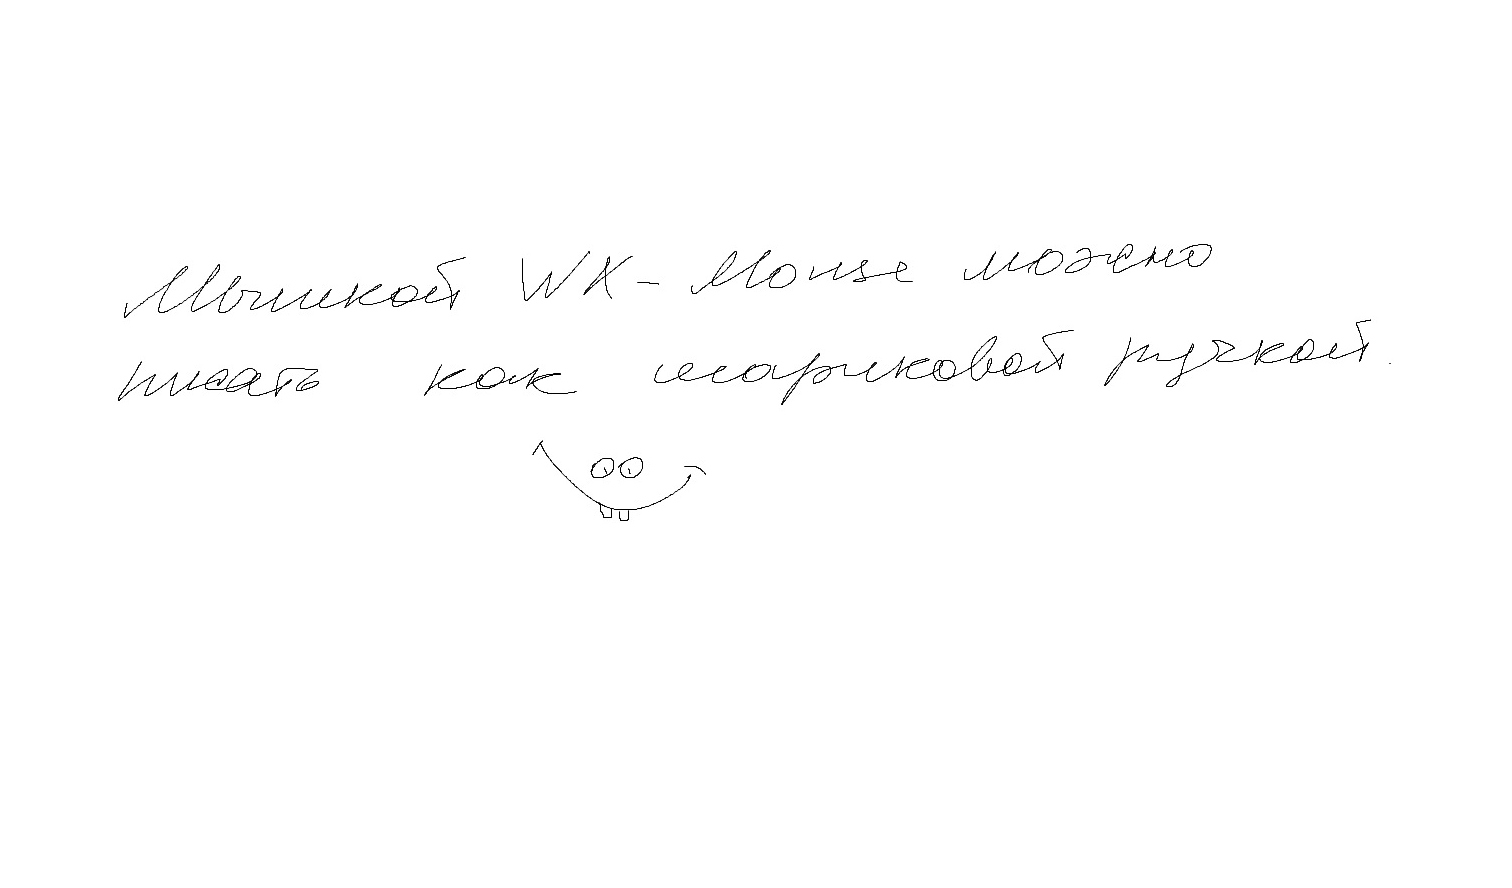 Мышкой WX-Mouse можно
писать как шариковой ручкой.